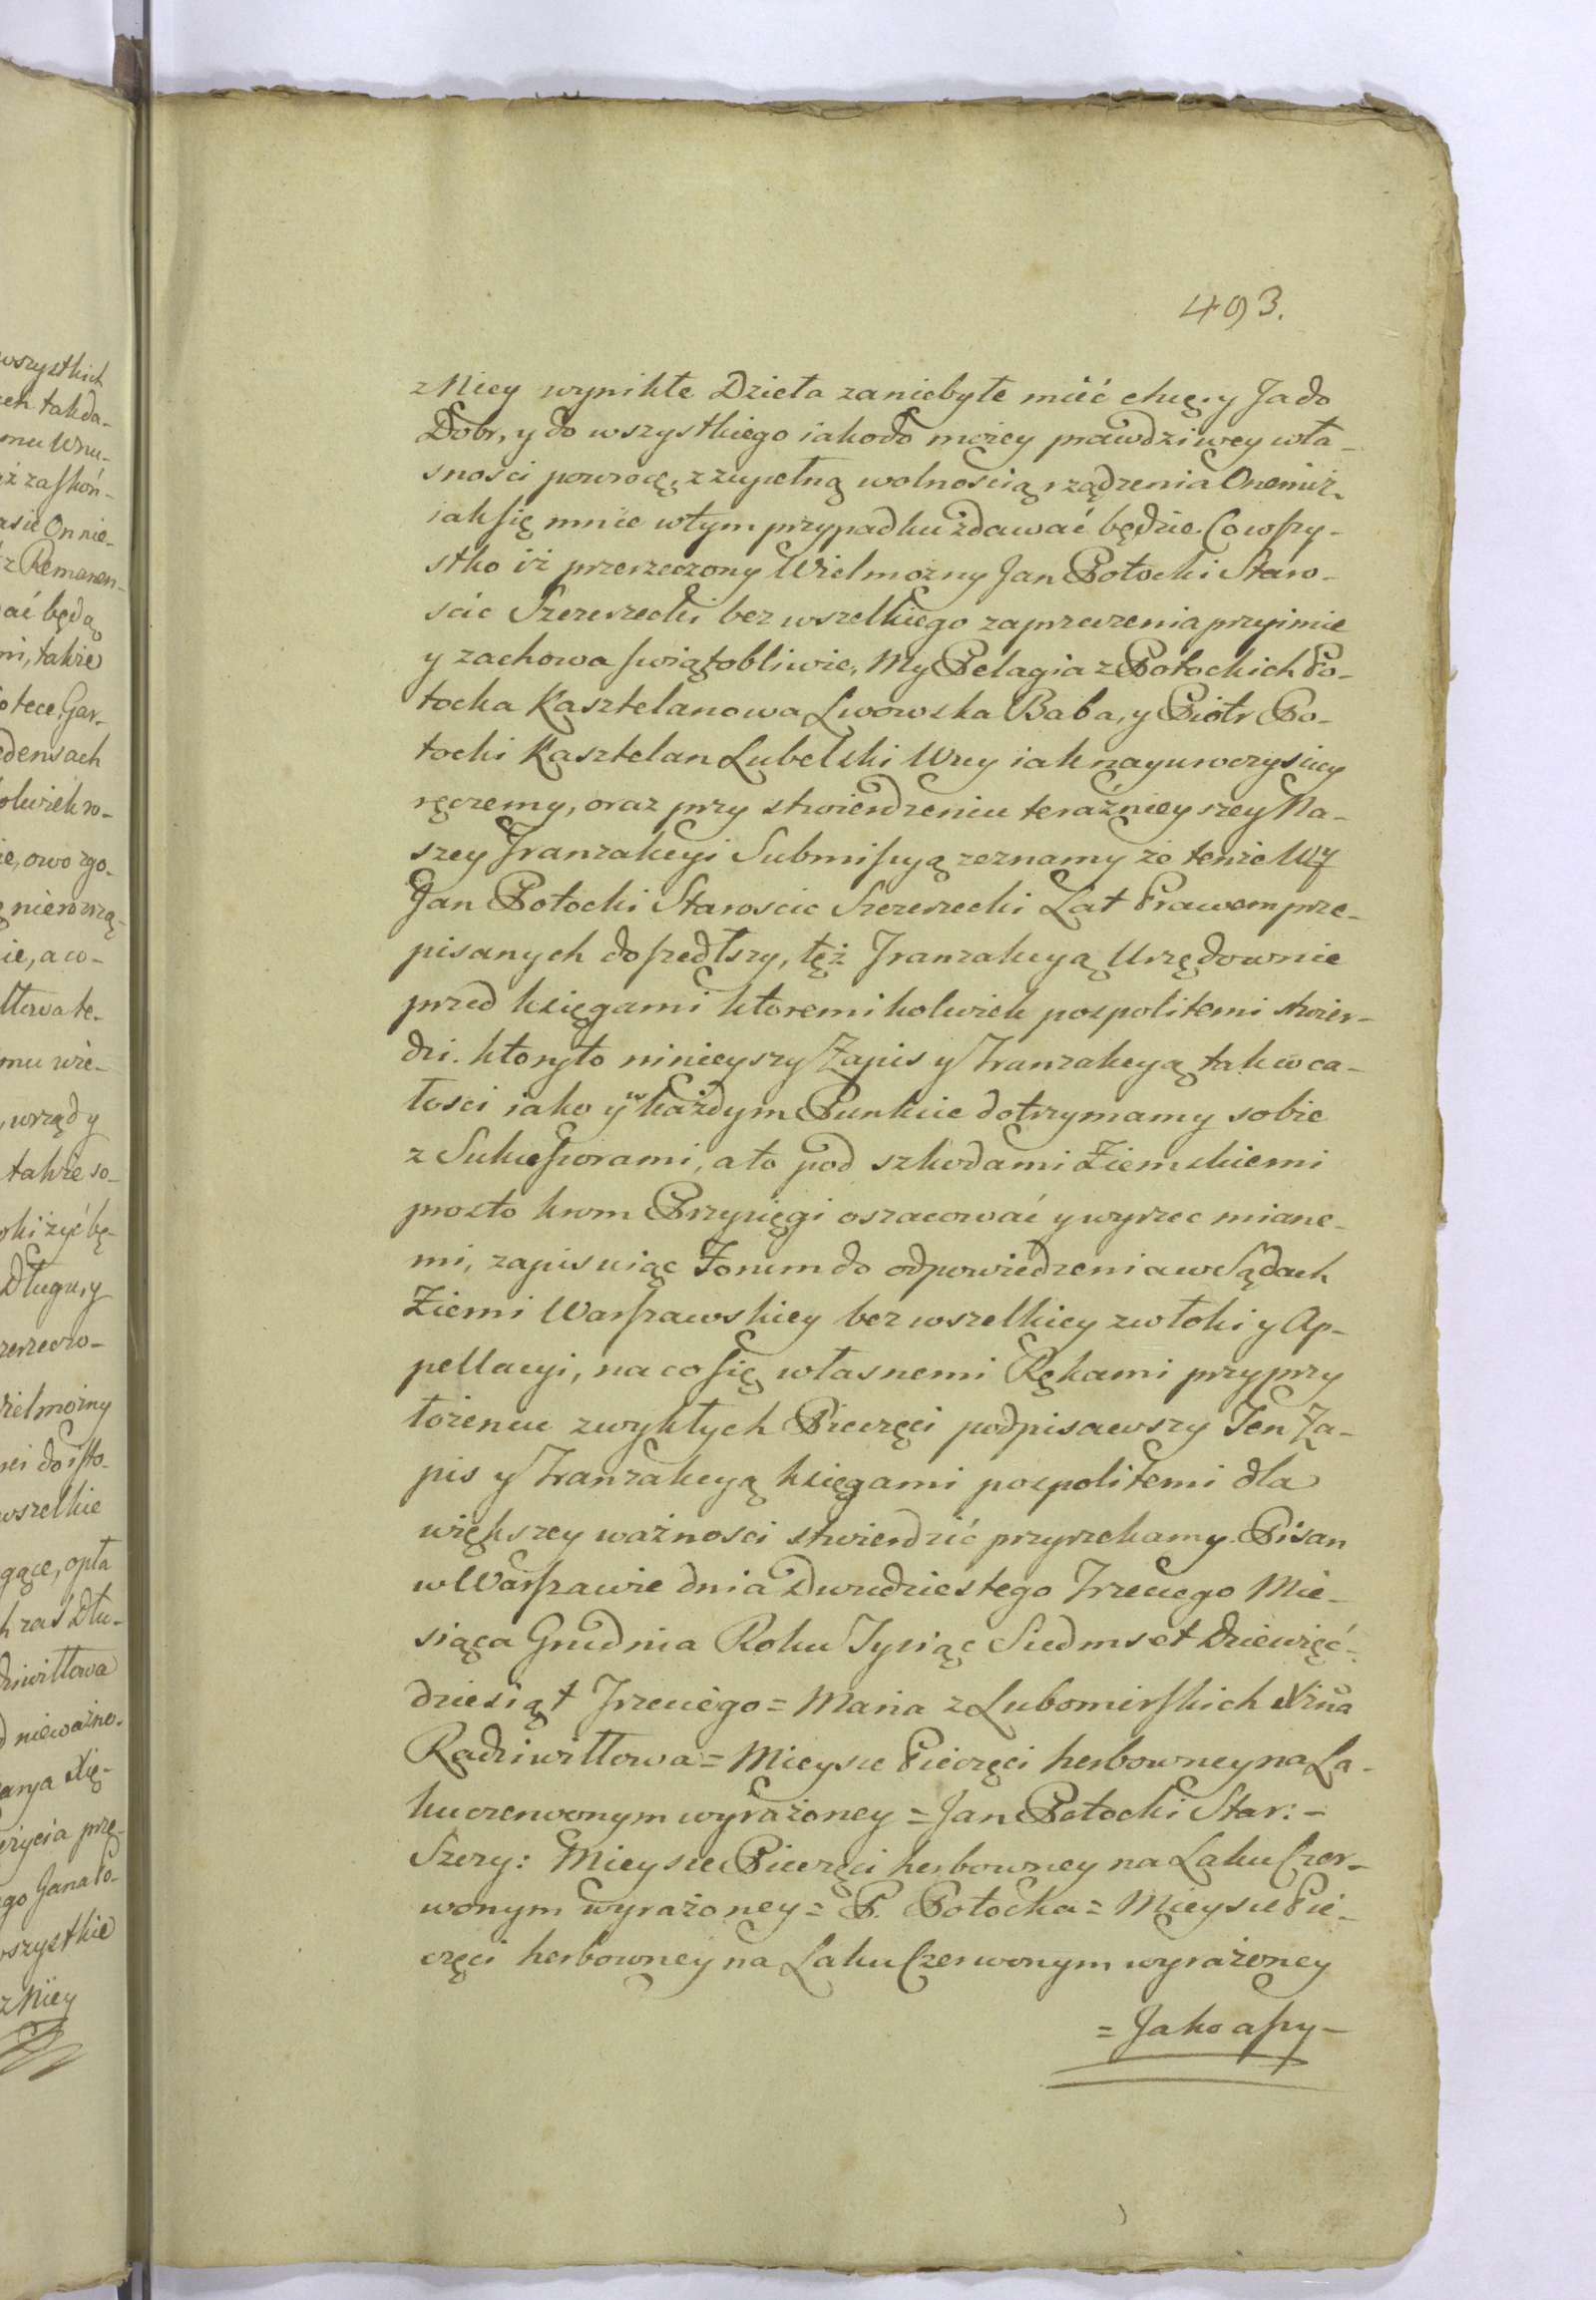 wszystkich
ch takda-
mu Wnu-
ż zaskoń-
asie On nie-
z Remanen-
ać będą
mi, także
otece, Gar-
densach
olwiek ro-
ie, owo zgo-
nierozrzą-
ie, a co-
ttowate-
mu wie-
, wrządy
także so-
oki żyć bę-
Długu, y
rzerzeczo-
Wielmożny
ści do isto-
wszelkie
gące, opła
h zas Dłu-
dziwittowa
nieważno-
anya Xię-
życia prze-
go Jana Po-
wszystkie
z Niey
493.
z Niey wynikłe Dzieła zaniebyłe mieć chcę, y Ja do
Dobr, y do wszystkiego iakodo moiey prawdziwey wła-
sności powrocę, z zupełną wolnością rządzenia Onemiż,
iak się mnie wtym przypadku zdawać będzie. Co wszy-
stko iż przerzeczony Wielmożny Jan Potocki Staro-
ścic Szerzecki bez wszelkiego zaprzeczenia przyimie
y zachowa swiątobliwie, My Pelagia z Potockich Po-
tocka Kasztelanowa Lwowska Baba, y Piotr Po-
tocki Kasztelan Lubelski Wuy iak nayuroczyściey
ręczemy, oraz przy stwierdzeniu teraźnieyszey Na-
szey Tranzakcyi Submissyą zeznamy że tenże WJ
Jan Potocki Staroscic Szerzecki Lat Prawem prze-
pisanych doszedłszy, tęż Tranzakcyą Urzędownie
przed księgami ktoremikolwiek pospolitemi stwier-
dzi. ktoryto ninieyszy Zapis y Tranzakcyą tak w ca-
łosci iako y w każdym Punkcie dotrzymamy sobie
z Sukcessorami, a to pod szkodami Ziemskiemi
prosto krom Przysięgi oszacować y wyrzec miane-
mi, zapisuiąc Forum do odpowiedzenia w Sądach
Ziemi Warszawskiey bez wszelkiey zwłoki y Ap-
pellacyi, na co się własnemi Rękami przy przy
łożeniu zwykłych Pieczęci podpisawszy Ten Za-
pis y Tranzakcyą księgami pospolitemi dla
większey ważnosci stwierdzić przyrzekamy. Pisan
w Warszawie dnia Dwudziestego Trzeciego Mie-
siąca Grudnia Roku Tysiąc Siedmset Dziewięć-
dziesiąt Trzeciego = Maria z Lubomirskich Xżna
Radziwiłłowa = Mieysce Pieczęci herbowney na La-
ku czerwonym wyrażoney = Jan Potocki Star: -
Szerz: Mieysce Pieczęci herbowney na Laku Czer-
wonym wyrażoney = P. Potocka = Mieysce Pie-
częci herbowney na Laku Czerwonym wyrażoney
= Jako assy-